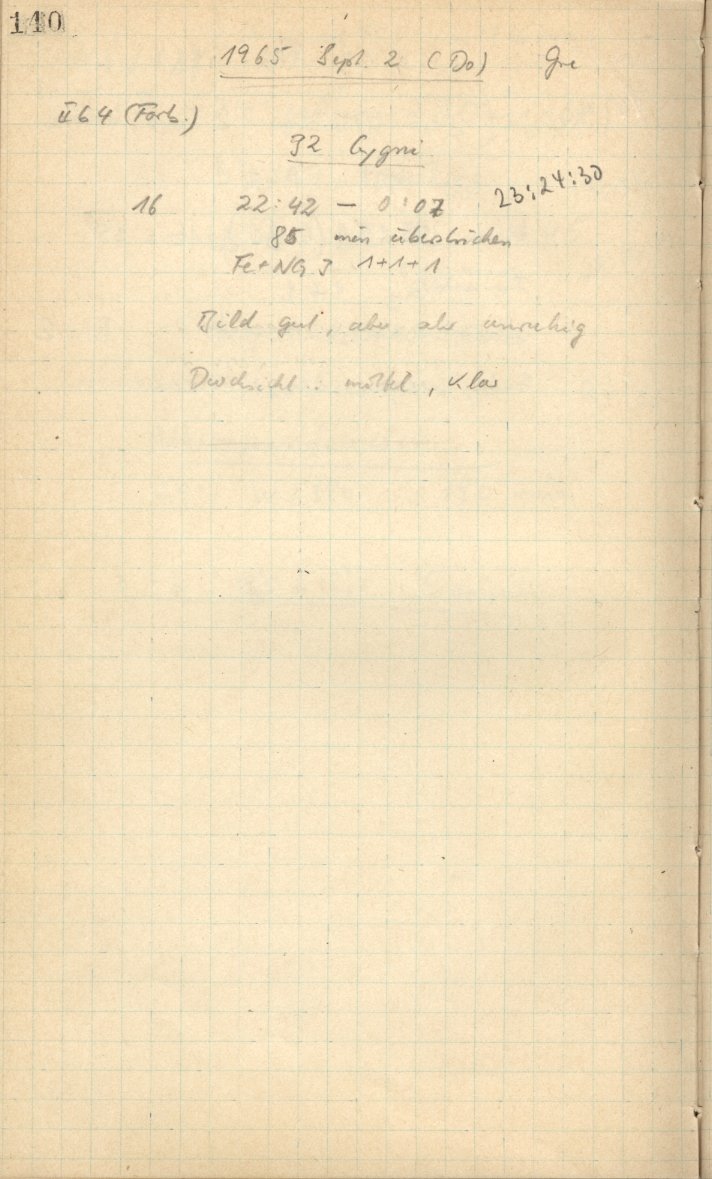 140
1965 Sept. 2 (Do) Gre
II 64 (Farb.)
32 Cygni
16 22:42 – 0:07 23:24:30
85 min überstrichen
Fe+NG3 1+1+1
Bild gut, aber sehr unruhig
Durchsicht: mittel, klar